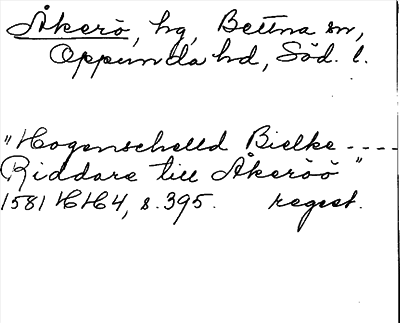 Åkerö, hg, Bettna sn,
Oppunda hd, Söd. l.
"Hogenschelld Bielke ----
Riddare till Åkeröö"
1581 HH4, s. 395. regest.